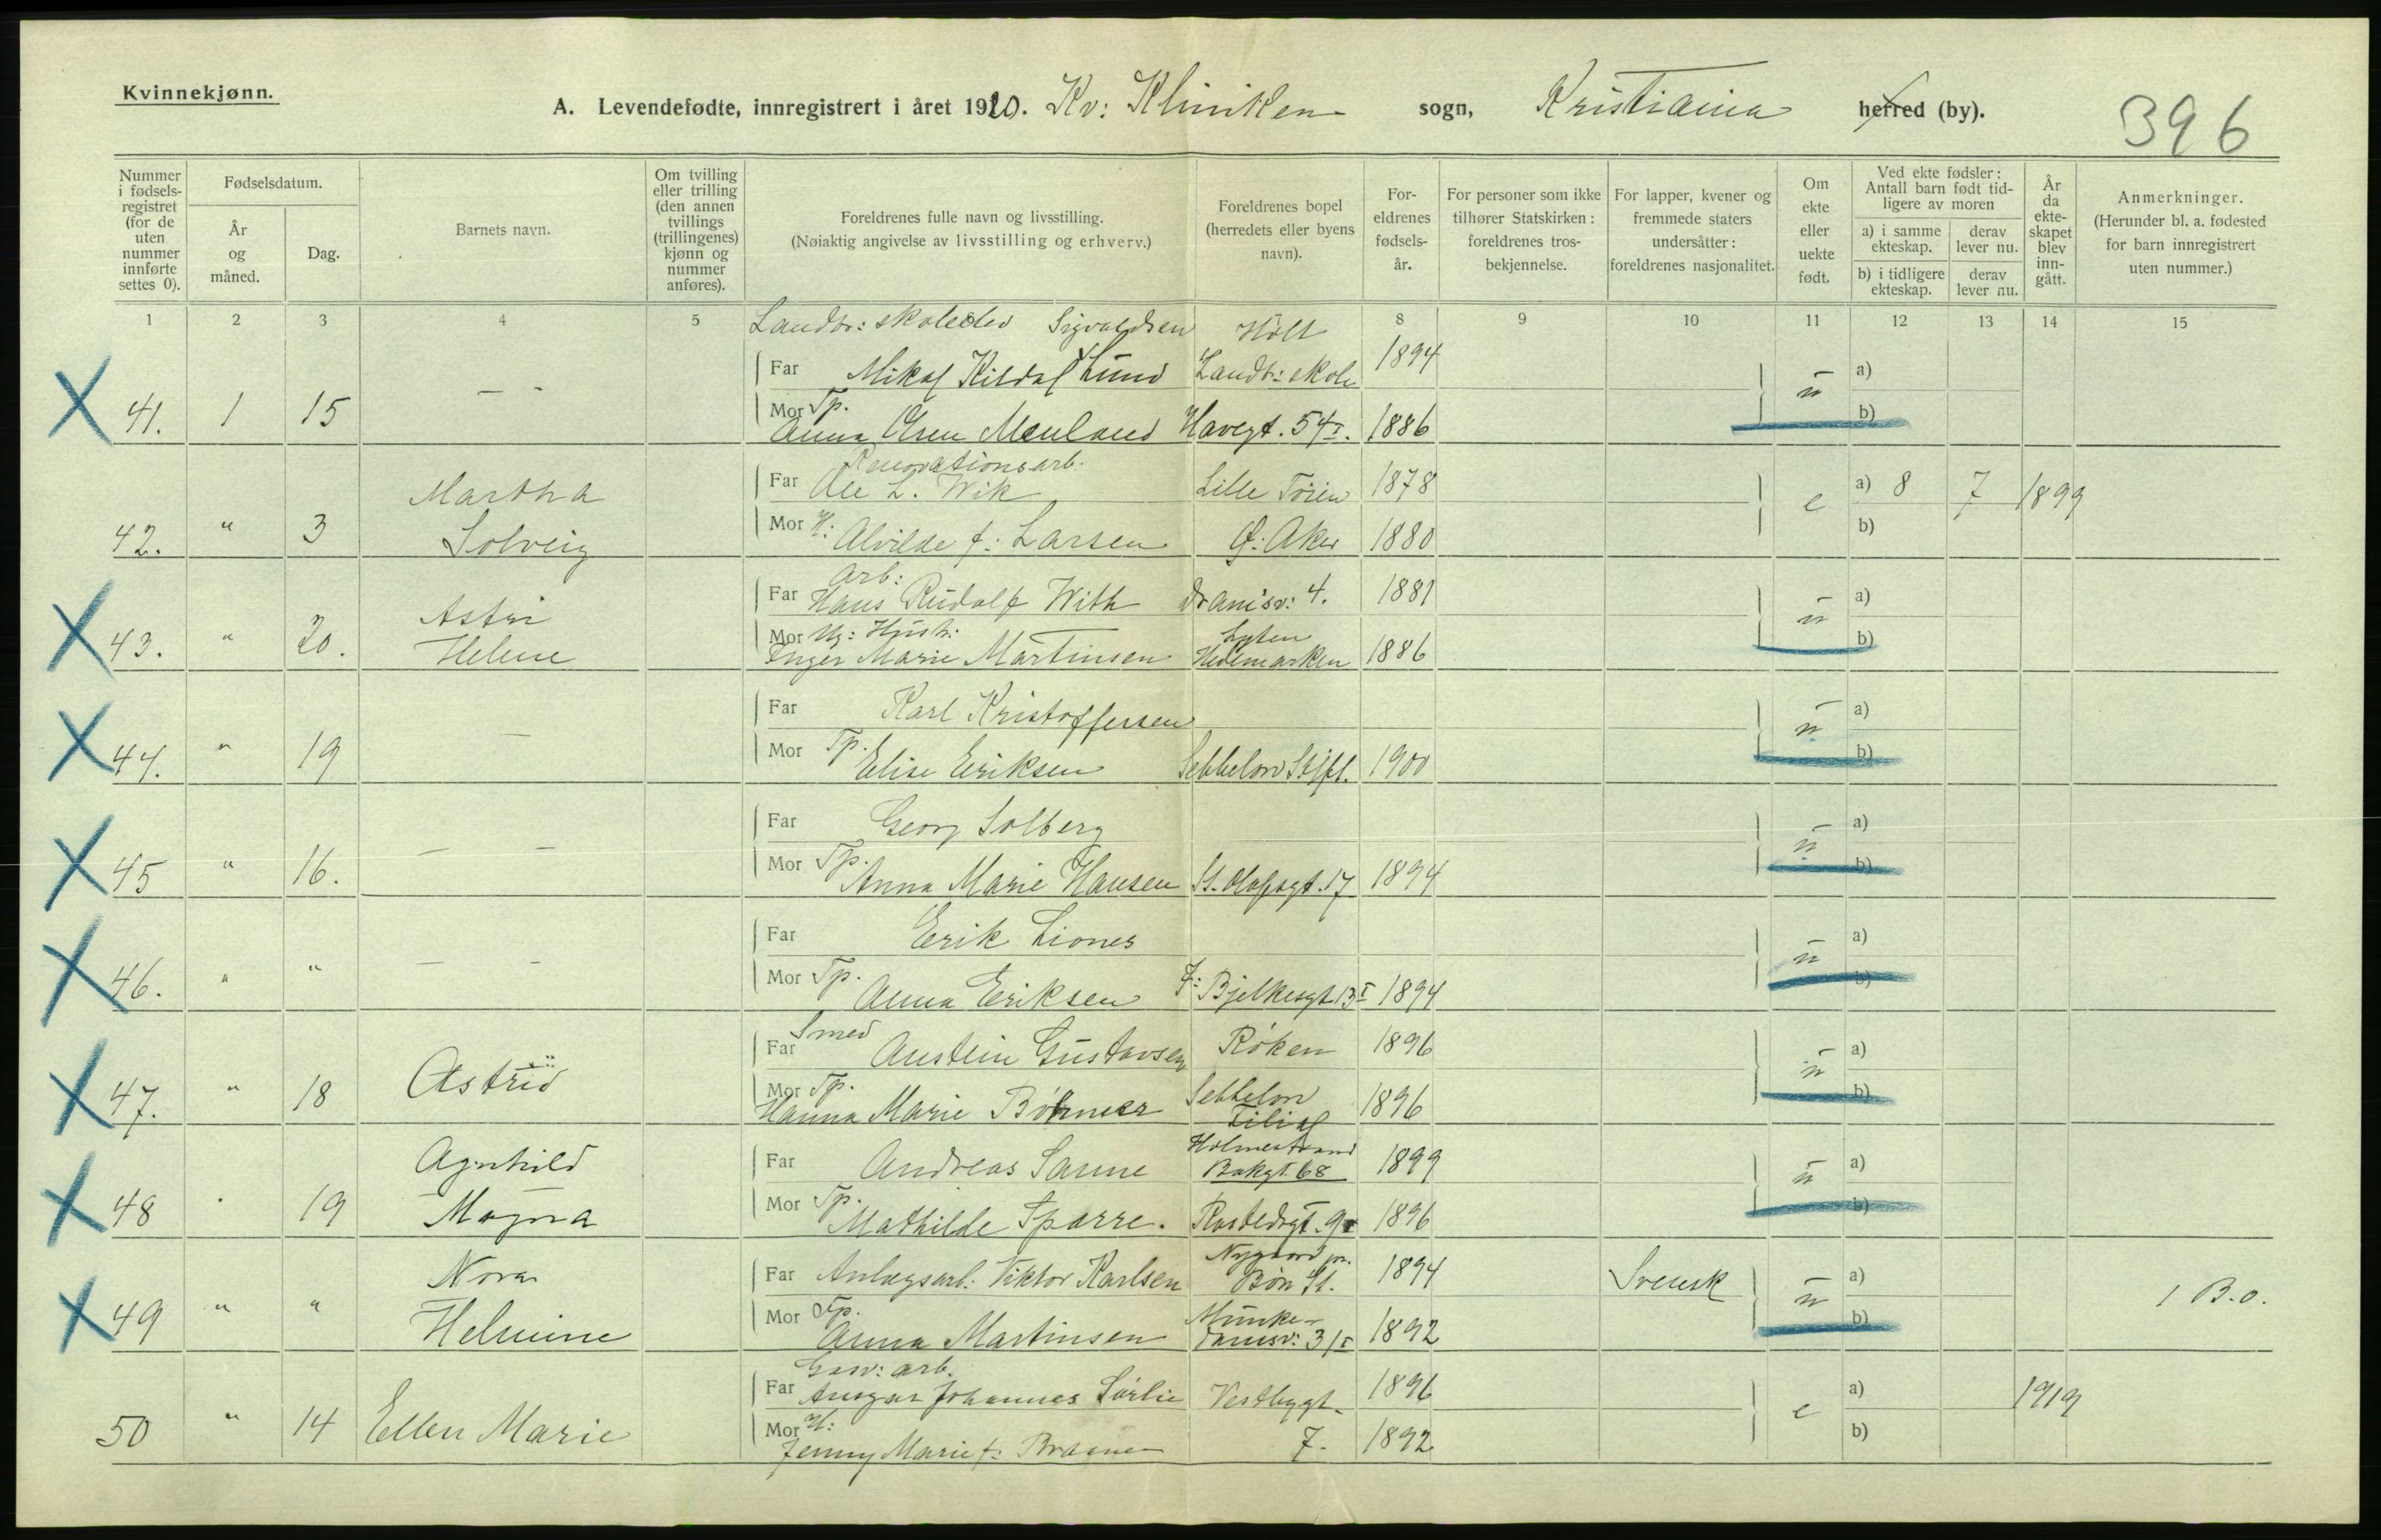 Kvinnekjønn.
A. Levendefødte, innregistrert i året 1920. Kv: Kliniken sogn, Kristiania herred (by).
396
Nummer i fødsels-registret (for de uten nummer innførte settes 0).
Fødselsdatum.
År og måned.
Dag.
Barnets navn.
Om tvilling eller trilling (den annen tvillings (trillingenes) kjønn og nummer anføres).
Foreldrenes fulle navn og livsstilling.
(Nøiaktig angivelse av livsstilling og erhverv.)
Foreldrenes bopel (herredets eller byens navn).
For-eldrenes fødsels-år.
For personer som ikke tilhører Statskirken: foreldrenes tros-bekjennelse.
For lapper, kvener og fremmede staters undersåtter: foreldrenes nasjonalitet.
Om ekte eller uekte født.
Ved ekte fødsler: Antall barn født tid-ligere av moren
a) i samme ekteskap.
derav lever nu.
b) i tidligere ekteskap.
derav lever nu.
År da ekte-skapet blev inn-gått.
Anmerkninger.
(Herunder bl. a. fødested for barn innregistrert uten nummer.)
1 2 3 4 5 8 9 10 11 12 13 14 15
Landbr: skoleelev Sigvaldsen Holt
Far Mikal Kildal Lund Landb: skole 1894 a)
X 41. 1 15 — - ū
Mor Tp. Anna Olsen Menland Havegt. 54 I. 1886 b)
Renovationsarb.
Far Ole L. Wik Lille Tøien 1878 a) 8 7 1899
Martha
42. " 3 Solveig e
Mor H: Alvilde f: Larsen Ø: Aker 1880 b)
Arb:
Far Hans Rudolf With 4. 1881 a)
X 43. " 20. Astri Helene ū
Mor Ug: Hush: Inger Marie Martinsen Løten Hedemarken 1886 b)
Far Karl Kristoffersen a)
X 44. " 19 — ū
Mor Tp. Elise Eriksen Sebbelow Stift. 1900 b)
Far Georg Solberg a)
X 45 " 16. — — ū
Mor Tp. Anna Marie Hansen St. Olafsgt. 17 1894 b)
Far Erik Liones a)
X 46. " " — - ū
Mor Tp. Anna Eriksen J: Bjelkesgt 13 I 1894 b)
Smed
Far Austein Gustavsen Røken 1896 a)
X 47. " 18 Astrid ū
Mor Tp. Hanna Marie Böhmer Sebbelow Filial 1896 b)
Far Andreas Sanne Holmestrand Bakgt. 68 1899 a)
X 48 " 19 Agnhild Magna ū
Mor Tp. Mathilde Sparre. Rostedsgt. 9 1896 b)
Far Anlegsarb. Viktor Karlsen Nygaard pr. Bøn St. 1894 Svensk a)
X 49 " " Nora Helmine ū 1 B.o.
Mor Tp. Anna Martinsen Munke-damsv: 31 I 1892 b)
Gasv: arb.
Far Ansgar Johannes Sørlie Vestbygt. 1896 a) 1919
50 " 14 Ellen Marie e
Mor H: Jenny Marie f: 7. 1892 b)